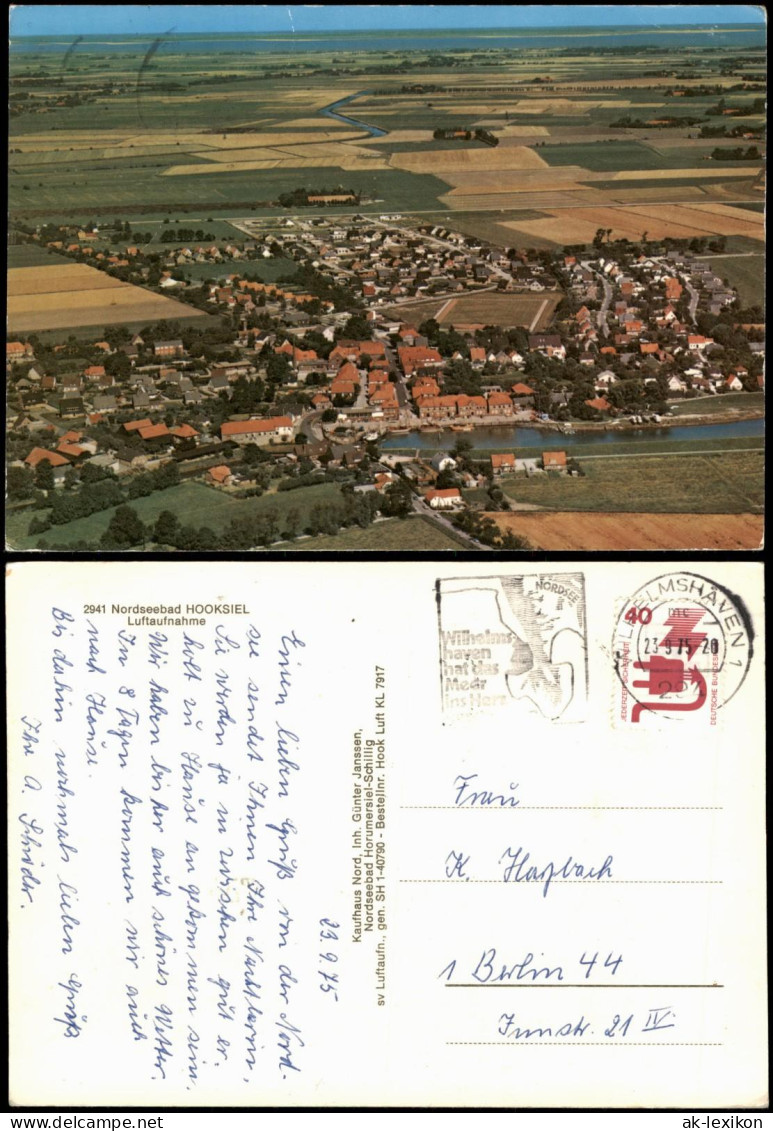 2941 Nordseebad HOOKSIEL
Luftaufnahme
23.9.75
Einen lieben Gruß von der Nord-
see sendet Ihnen Ihre Nachbarin,
Sie werden ja in zwischen gut er-
holt zu Hause an gekommen sein.
Wir haben bis her auch schönes Wetter.
In 8 Tagen kommen wir auch
nach Hause.
Bis dahin nochmals lieben Gruß
Ihre A. Schröder.
Kaufhaus Nord, Inh. Günter Janssen,
Nordseebad Horumersiel-Schillig
sv Luftaufn., gen. SH 1-40790 - Bestellnr. Hook Luft KL 7917
NORDSEE
Wilhelms-
haven
hat das
Meer
ins Herz
WILHELMSHAVEN 1
23.9.75-20
294
40
JEDERZEIT SICHERHEIT
DEUTSCHE BUNDESPOST
Frau
K. Harbach
1 Berlin 44
Innstr. 21 IV
www.ansichtskarten-lexikon.de
ak-lexikon.com